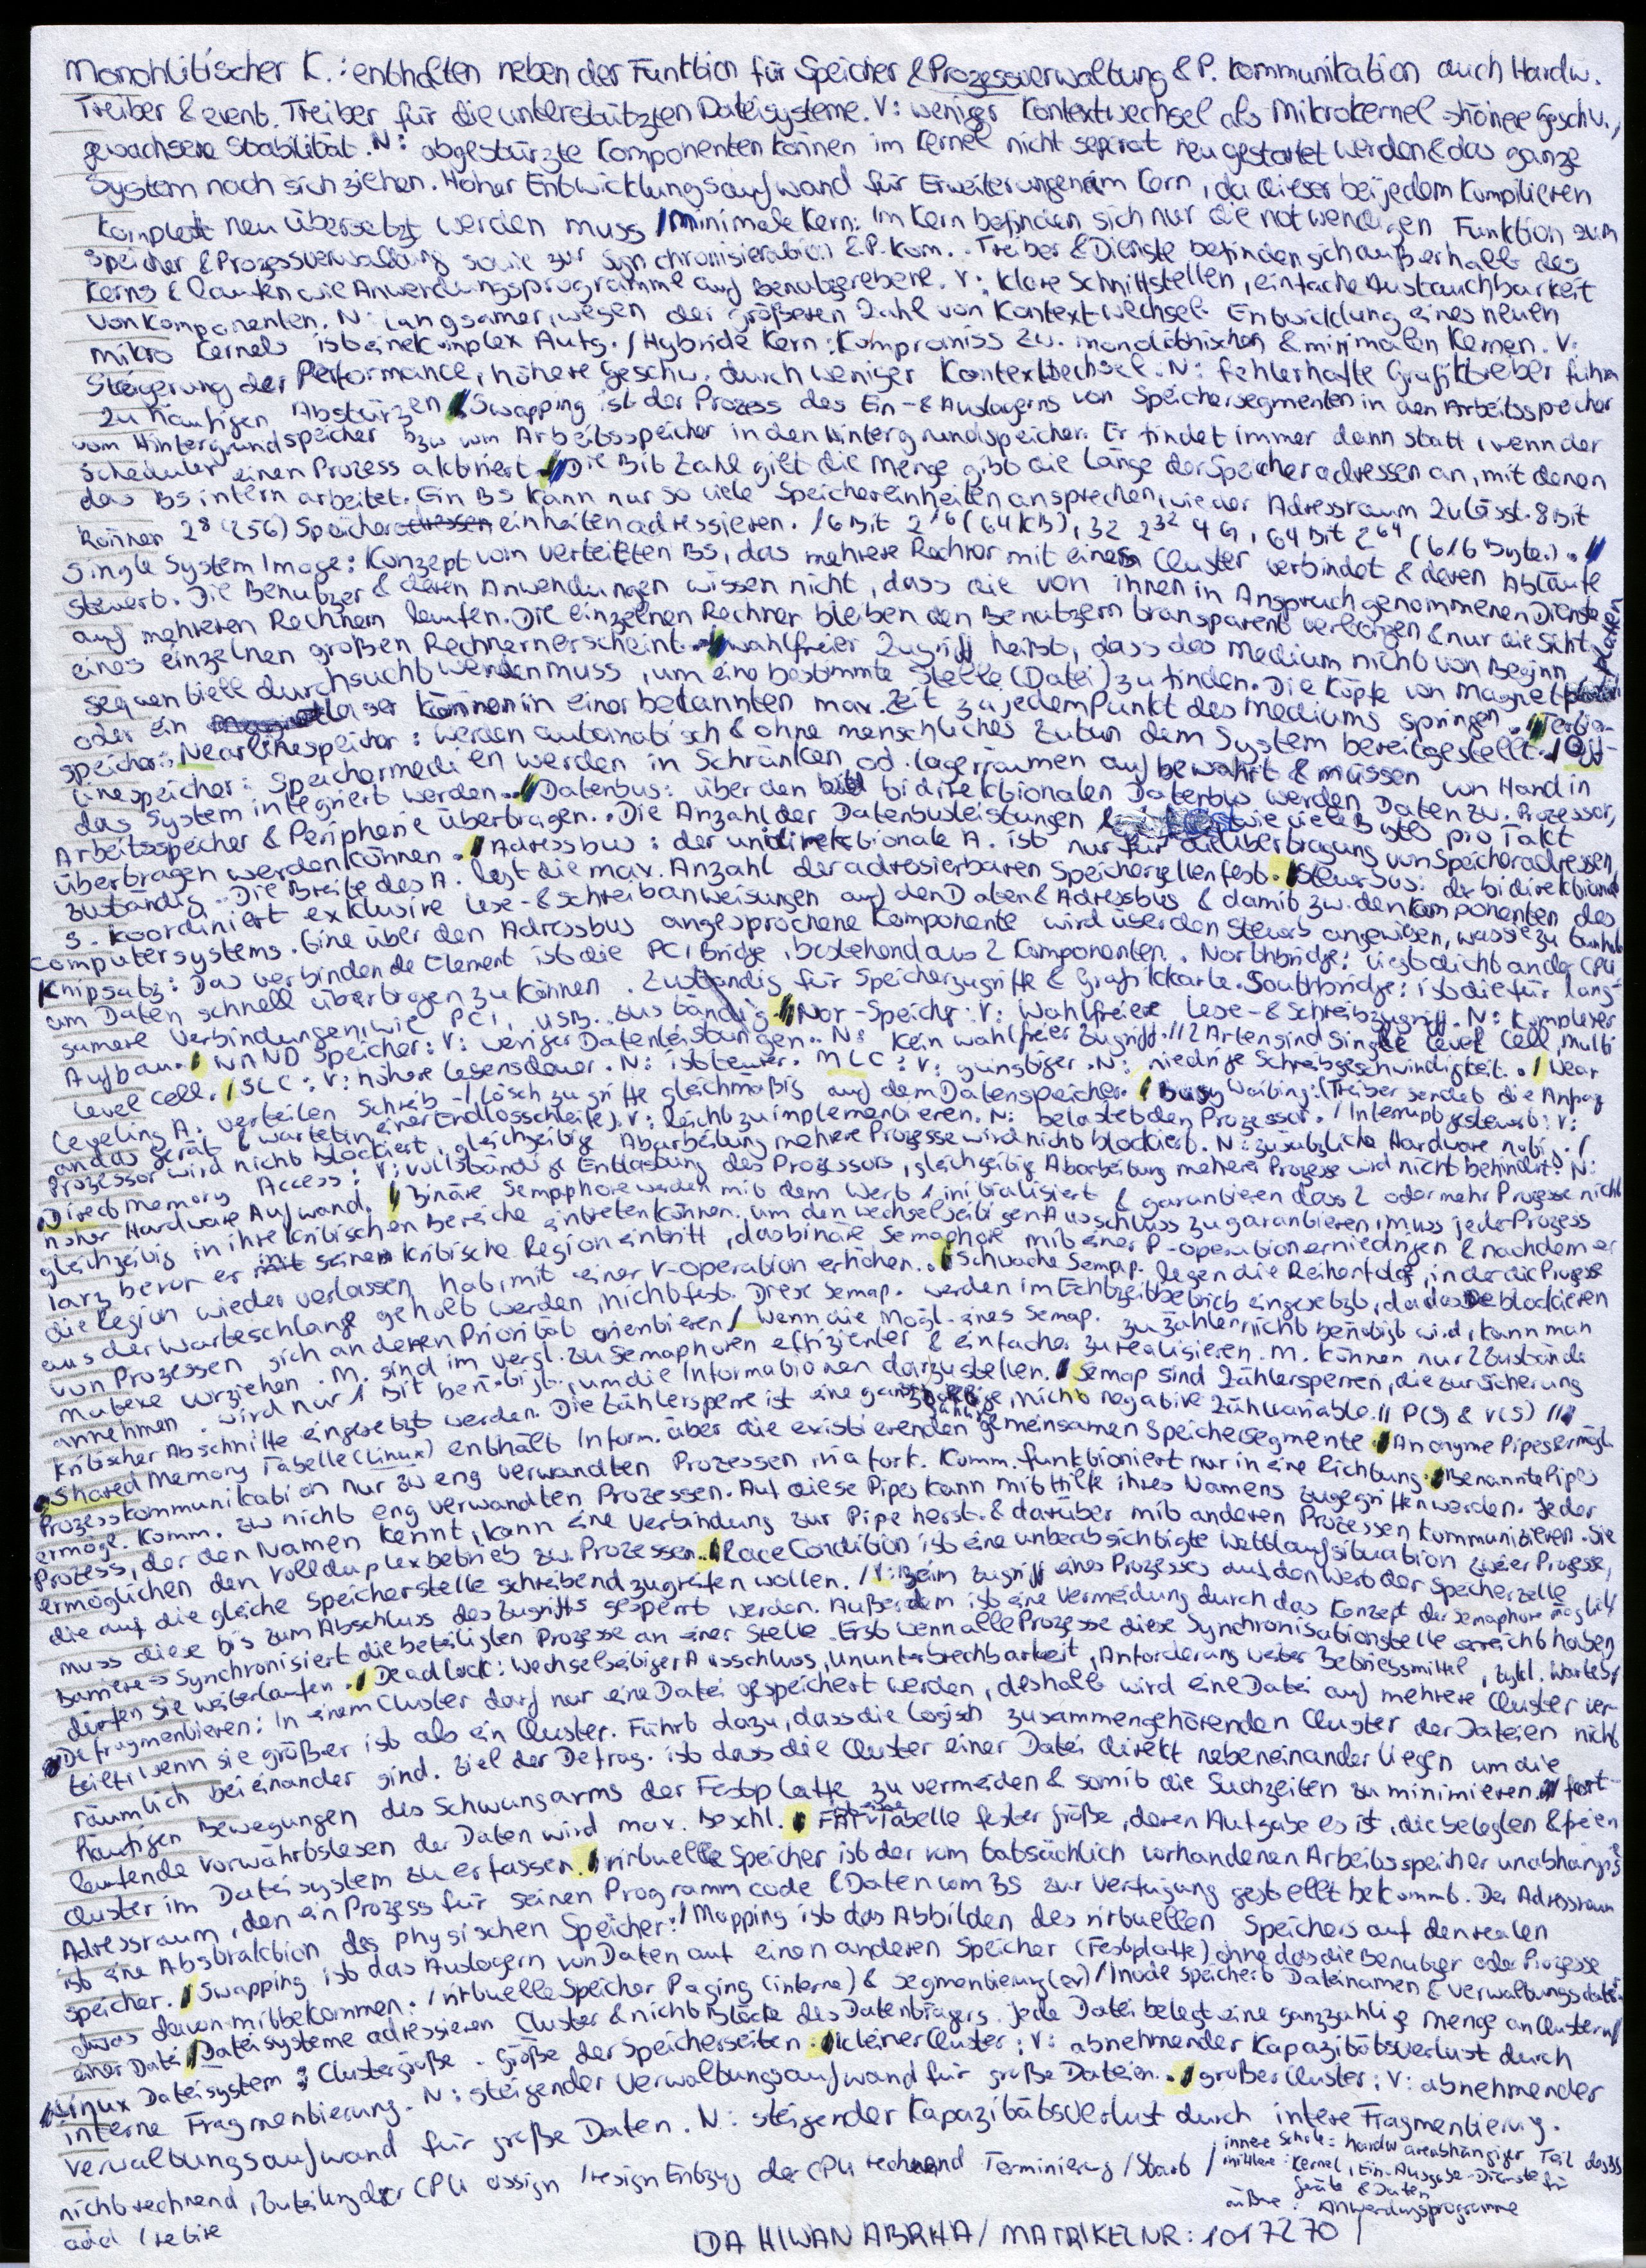 Monohlitischer K.: enthalten neben der Funktion für Speicher & Prozessverwaltung & P. Kommunikation auch Hardw.
Treiber & event. Treiber für die unterstützten Dateisysteme. V: weniger Kontextwechsel als Mikrokernel → höhere Geschw.,
gewachsene Stabilität. N: abgestürzte Componenten können im Kernel nicht separat neu gestartet werden & das ganze
System nach sich ziehen. Hoher Entwicklungsaufwand für Erweiterungen am Kern, da dieser bei jedem Kompilieren
komplett neu übersetzt werden muss / Minimale Kern: Im Kern befinden sich nur die notwendigen Funktion zum
Speicher & Prozessverwaltung sowie zur Synchronisieration & P. Kom.. Treiber & Dienste befinden sich außerhalb des
Kerns & laufen wie Anwendungsprogramme auf Benutzerebene. V: klare Schnittstellen, einfache Austauchbarkeit
von Komponenten. N: langsamer, wegen der größeren Zahl von Kontextwechsel. Entwicklung eines neuen
Mikro Kernels ist eine Komplex Aufg. / Hybride Kern: Kompromiss zw. monolithischen & minimalen Kernen. V:
Steigerung der Performance, höhere Geschw. durch weniger Kontextwechsel. N: fehlerhafte Grafiktreiber führen
zu häufigen Abstürzen // Swapping ist der Prozess des Ein- & Auslagerns von Speichersegmenten in den Arbeitsspeicher
vom Hintergrundspeicher bzw vom Arbeitsspeicher in den Hintergrundspeicher. Er findet immer dann statt, wenn der
Scheduler einen Prozess aktiviert. // Die Bit Zahl gibt die Menge gibt die Länge der Speicheradressen an, mit denen
das BS intern arbeitet. Ein BS kann nur so viele Speichereinheiten ansprechen, wie der Adressraum zulässt. 8 Bit
können 2^8 (256) Speichereinheiten adressieren. 16 Bit 2^16 (64 KB), 32 2^32 4G, 64 Bit 2^64 (616 Byte.). //
Single System Image: Konzept vom verteilten BS, das mehrere Rechner mit einem Cluster verbindet & deren Abläufe
steuert. Die Benutzer & deren Anwendungen wissen nicht, dass die von ihnen in Anspruch genommenen Dienste
auf mehreren Rechnern laufen. Die einzelnen Rechner bleiben den Benutzern transparent verborgen & nur die Sicht
eines einzelnen großen Rechnern erscheint. // Wahlfreier Zugriff heißt, dass das Medium nicht von Beginn
sequentiell durchsucht werden muss, um eine bestimmte Stelle (Datei) zu finden. Die Köpfe von Magnetplatten
oder ein Laser können in einer bekannten max. Zeit zu jedem Punkt des Mediums springen. // Tertiär-
speicher: Nearlinespeicher: werden automatisch & ohne menschliches Zutun dem System bereitgestellt. / Off-
linespeicher: Speichermedien werden in Schränken od. Lagerräumen aufbewahrt & müssen von Hand in
das System integriert werden. // Datenbus: über den bidirektionalen Datenbus werden Daten zw. Prozessor,
Arbeitsspeicher & Peripherie übertragen. Die Anzahl der Datenbusleistungen wie viele Bytes pro Takt
übertragen werden können. // Adressbus: der unidirektionale A. ist nur für die Übertragung von Speicheradressen
zuständig. Die Breite des A. legt die max. Anzahl der adressierbaren Speicherzellen fest. // Steuerbus: der bidirektional
S. koordiniert exklusive Lese- & Schreibanweisungen auf den Daten & Adressbus & damit zw. den Komponenten des
Computersystems. Eine über den Adressbus angesprochene Komponente wird über den Steuerb angewiesen, was sie zu tun hat
Chipsatz: Das verbindende Element ist die PCI Bridge, bestehend aus 2 Componenten. Northbridge: liegt dicht an der CPU
um Daten schnell übertragen zu können. Zuständig für Speicherzugriffe & Grafikkarte. Southbridge: ist die für lang-
samere Verbindungen, wie PCI, USB.. zuständig. // Nor-Speicher: V: Wahlfreier Lese- & Schreibzugriff. N: Komplexer
Aufbau. / NAND Speicher: V: weniger Datenleistungen. N: kein wahlfreier Zugriff. // 2 Arten sind Single level Cell, multi
level cell. / SLC: V: höhere Lebensdauer. N: ist teuer. MLC: V: günstiger. N: niedrige Schreibgeschwindigkeit. / Wear
Leveling A. verteilen Schreib-/Löschzugriffe gleichmäßig auf dem Datenspeicher. / Busy Waiting: (Treiber sendet die Anfrag
an das Gerät & wartet in einer Endlosschleife). V: leicht zu implementieren. N: belastet den Prozessor. / Interrupt gesteuert: V:
Prozessor wird nicht blockiert, gleichzeitige Abarbeitung mehrere Prozesse wird nicht blockiert. N: zusätzliche Hardware nötig. /
Direct Memory Access: V: vollständige Entlastung des Prozessors, gleichzeitig Abarbeitung meherer Prozesse wird nicht behindert. N:
hoher Hardware Aufwand. // Binäre Semaphore werden mit dem Wert 1 initialisiert & garantieren dass 2 oder mehr Prozesse nicht
gleichzeitig in ihre kritischen Bereiche eintreten können. Um den wechselseitigen Ausschluss zu garantieren, muss jede Prozess
kurz bevor er seinen kritische Region eintritt, das binäre Semaphore mit einer P-operation erniedrigen & nachdem er
die Region wieder verlassen hat, mit einer V-operation erhöhen. // Schwache Semap. legen die Reihenfolge, in der die Prozesse
aus der Warteschlange geholt werden, nicht fest. Diese Semap. werden im Echtzeitbetrieb eingesetzt, da das Deblockieren
von Prozessen sich an deren Priorität orientieren / Wenn die Mögl. eines Semap. zu zählen nicht benötigt wird, kann man
Mutexe vorziehen. M. sind im vergl. zu Semaphoren effizienter & einfacher zu realisieren. M. können nur 2 Zustände
annehmen. Wird nur 1 Bit benötigt, um die Informationen darzustellen. // Semap sind Zählersperren, die zur Sicherung
kritischer Abschnitte eingesetzt werden. Die Zählersperre ist eine ganzzahlige, nicht negative Zählvariable. // P(S) & V(S) //
Shared Memory Tabelle (Linux) enthält Inform. über die existierenden gemeinsamen Speichersegmente // Anonyme Pipes ermögl.
Prozesskommunikation nur zw eng verwandten Prozessen, via fork. Komm. funktioniert nur in eine Richtung. // Benannte Pipes
ermögl. Komm. zw nicht eng verwandten Prozessen. Auf diese Pipes kann mithilfe ihres Namens zugegriffen werden. Jeder
Prozess, der den Namen kennt, kann eine Verbindung zur Pipe herst. & darüber mit anderen Prozessen kommunizieren. Sie
ermöglichen den Vollduplexbetrieb zw. Prozessen. // Race Condition ist eine unbeabsichtigte Wettlaufsituation zweier Prozesse,
die auf die gleiche Speicherstelle schreibend zugreifen wollen. / V: Beim Zugriff eines Prozesses auf den Wert der Speicherzelle
muss diese bis zum Abschluss des Zugriffs gesperrt werden. Außerdem ist eine Vermeidung durch das Konzept der Semaphore möglich
Barriere → Synchronisiert die beteiligten Prozesse an einer Stelle. Erst wenn alle Prozesse diese Synchronisationsstelle erreicht haben
dürfen sie weiterlaufen. // Deadlock: Wechselseitiger Ausschluss, Ununterbrechbarkeit, Anforderung weiter Betriebsmittel, zykl. Wartebe
Defragmentieren: In einem Cluster darf nur eine Datei gespeichert werden, deshalb wird eine Datei auf mehrere Cluster ver-
teilt, wenn sie größer ist als ein Cluster. Führt dazu, dass die logisch zusammengehörenden Cluster der Dateien nicht
räumlich beieinander sind. Ziel der Defrag. ist dass die Cluster einer Datei direkt nebeneinander liegen um die
häufigen Bewegungen des Schwungarms der Festplatte zu vermeiden & somit die Suchzeiten zu minimieren. // fort-
laufende vorwährtslesen der Daten wird max. beschl. // FAT ist eine Tabelle fester größe, deren Aufgabe es ist, die belegten & freien
Cluster im Dateisystem zu erfassen. // virtuelle Speicher ist der vom tatsächlich vorhandenen Arbeitsspeicher unabhängige
Adressraum, den ein Prozess für seinen Programmcode & Daten vom BS zur Verfügung gestellt bekommt. Der Adressraum
ist eine Abstraktion des physischen Speicher. / Mapping ist das Abbilden des virtuellen Speichers auf den realen
Speicher. // Swapping ist das Auslagern von Daten auf einen anderen Speicher (Festplatte) ohne das die Benutzer oder Prozesse
etwas davon mitbekommen. / virtuelle Speicher Paging (interne) & Segmentierung (ex) / Inode speichert Dateinamen & Verwaltungsdate.
einer Datei // Dateisysteme adressieren Cluster & nicht Blöcke des Datenträgers. Jede Datei belegt eine ganzzahlige Menge an Cluster
Linux Dateisystem: Clustergröße = Größe der Speicherseiten. // kleiner Cluster: V: abnehmender Kapazitätsverlust durch
interne Fragmentierung. N: steigender Verwaltungsaufwand für große Dateien. // großer Cluster: V: abnehmender
Verwaltungsaufwand für große Daten. N: steigender Kapazitätsverlust durch intere Fragmentierung.
nicht rechnend, Zuteilung der CPU assign / resign Entzug der CPU rechnend Terminierung / Start /
add / retire
innere Schale: hardwareabhängiger Teil des BS
mittlere: Kernel, Ein-Ausgabe-Dienste für
Geräte & Daten
äußere: Anwendungsprogramme
IDA HIWAN ABRHA / MATRIKELNR: 1017270 /